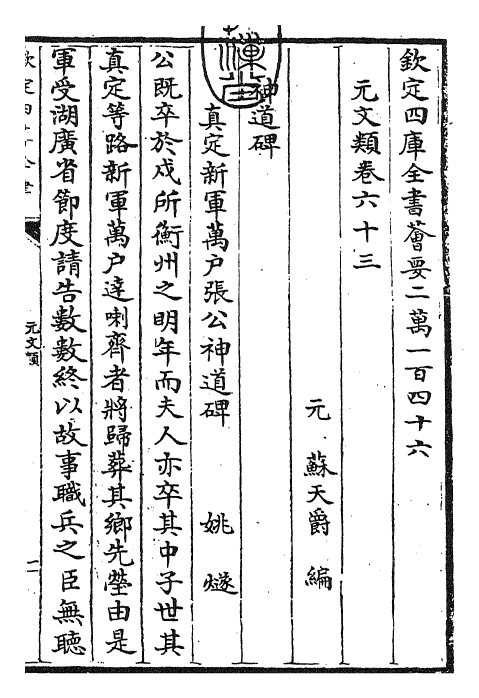 欽定四庫全書薈要二萬一百四十六
元文類卷六十三
元 蘇天爵 編
神道碑
真定新軍萬戶張公神道碑 姚燧
公既卒於戍所衡州之明年而夫人亦卒其中子世其
真定等路新軍萬户達喇齊者將歸葬其鄉先塋由是
軍受湖廣省節度請告數數終以故事職兵之臣無聴
欽定四庫全書
元文類